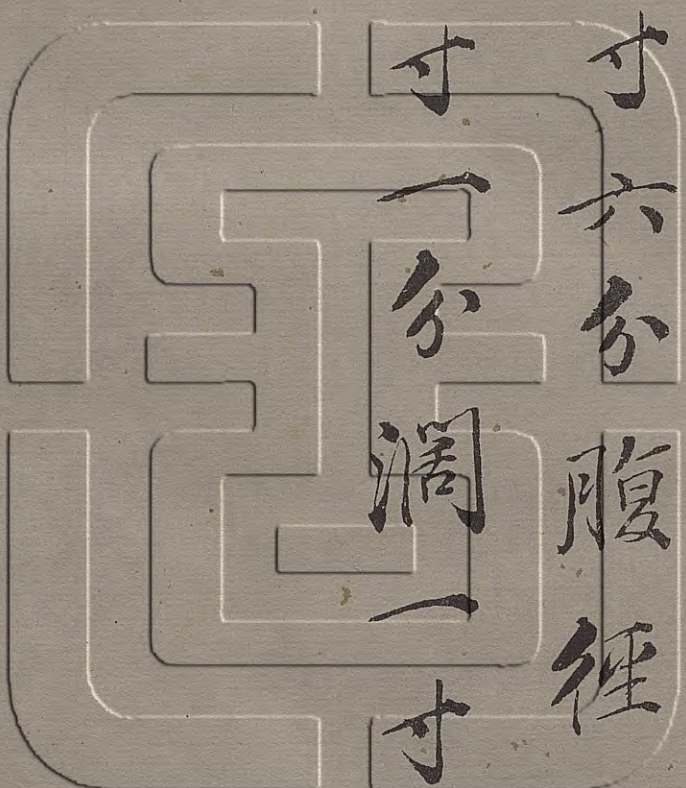 寸六分腹徑
寸一分濶一寸